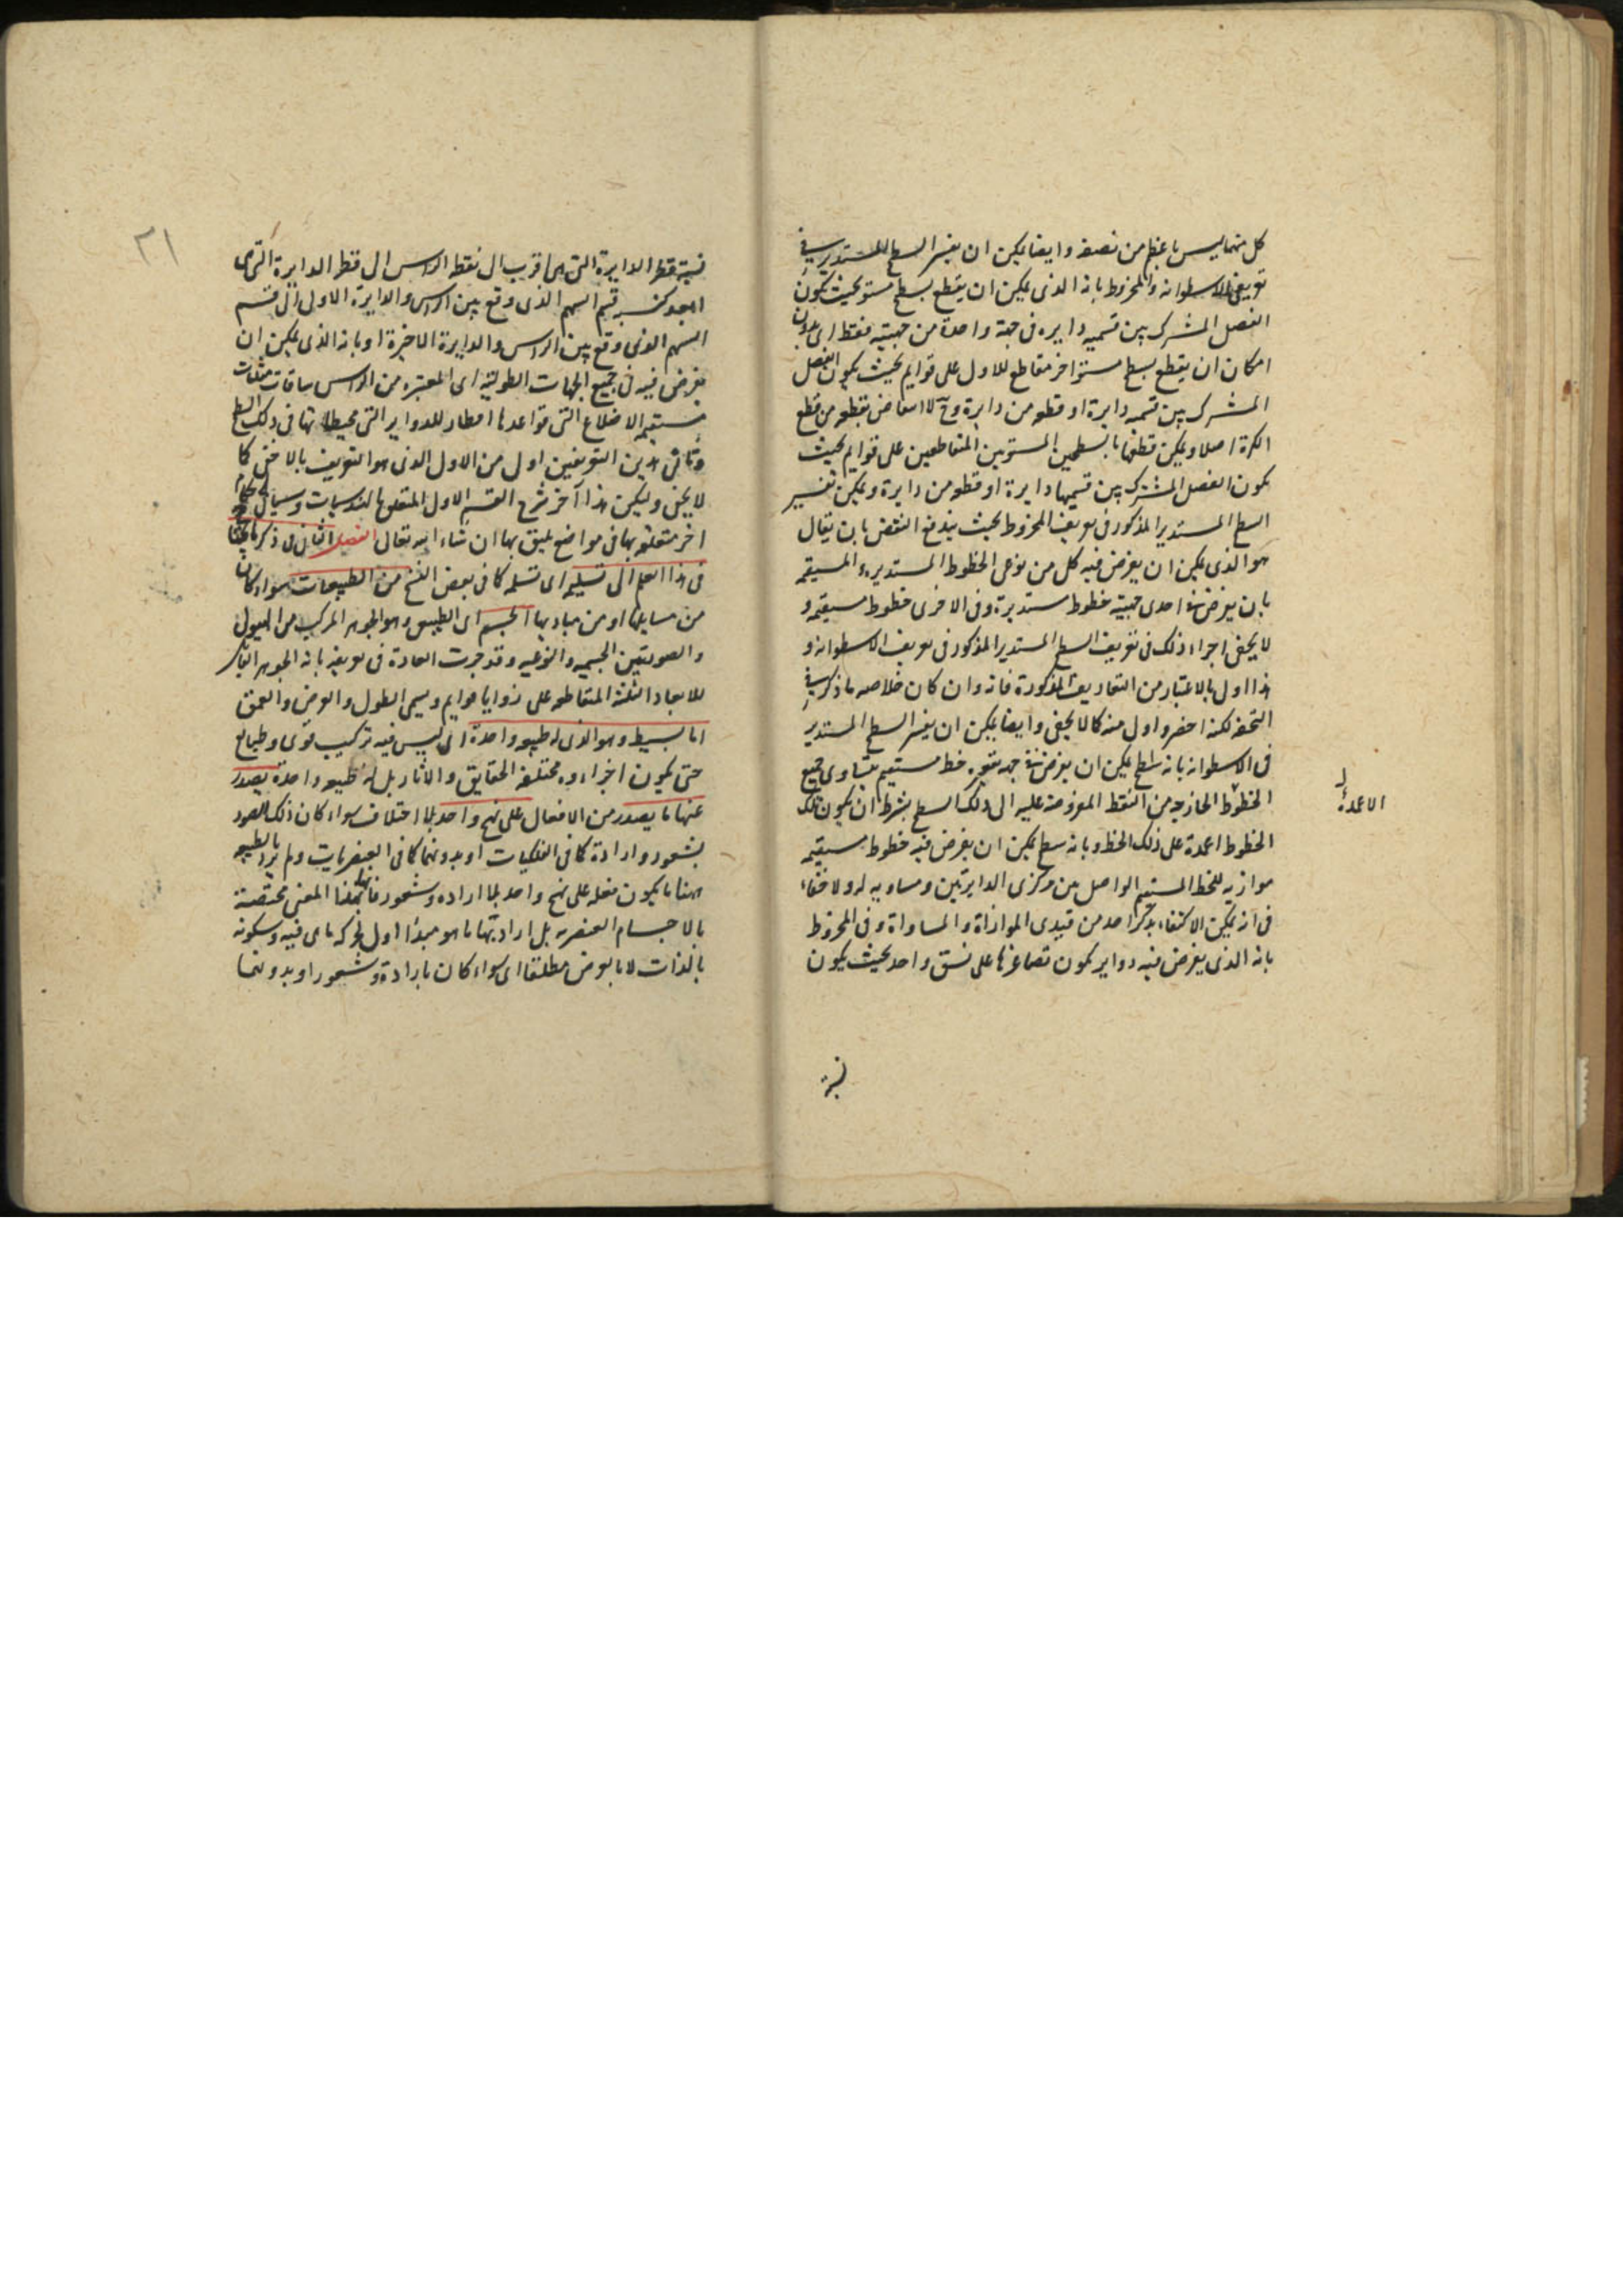 كل منهما ليس باعظم من نصفه وايضا يمكن ان يفسر السطح المستدير في
تعريف الاسطوانه والمخروط بانه الذى يمكن ان يقطع بسطح مستو بحيث يكون
الفصل المشترك بين قسميه دايره فى جهة واحدة من جهتيه فقط اى بدون
امكان ان يقطع بسطح مستو اخر مقاطع للاول على قوايم بحيث يكون الفصل
المشترك بين قسميه دايرة او قطعه من دايرة وح لا انتقاض بقطعه من قطع
الكرة اصلا ويمكن قطعها بالسطحين المستويين المتقاطعين على قوايم بحيث
يكون الفصل المشترك بين قسميها دايرة او قطعه من دايرة ويمكن تفسير
السطح المستدير المذكور فى تعريف المخروط بحيث يندفع النقض بان يقال
هو الذى يمكن ان يفرض فيه كل من نوعى الخطوط المستديره والمستقيمه
بان يفرض فى احدى جهتيه خطوط مستديرة وفى الاخرى خطوط مستقيمه و
لا يخفى اجراء ذلك فى تعريف السطح المستدير المذكور فى تعريف الاسطوانه و
هذا اولى بالاعتبار من التعاريف المذكورة فانه وان كان خلاصه ما ذكر في
التحفه لكنه اخصر واولى منه كما لا يخفى وايضا يمكن ان يفسر السطح المستدير
فى الاسطوانه بانه سطح يمكن ان يفرض فى جهة تقعره خط مستقيم يتساوى جميع
الخطوط الخارجه من النقط المفروضة عليه الى ذلك السطح بشرط ان يكون تلك
الخطوط اعمدة على ذلك الخط وبانه سطح يمكن ان يفرض فيه خطوط مستقيمه
موازيه للخط المستقيم الواصل بين مركزى الدايرتين ومساويه له ولا خفاء
فى انه يمكن الاكتفاء بذكر احد من قيدى الموازاة والمساواة وفى المخروط
بانه الذى يفرض فيه دواير يكون تصاغرها على نسق واحد بحيث يكون
نسبة
الاعمدة
٢١
نسبة قطر الدايرة التى هى اقرب الى نقطه الراس الى قطر الدايرة التى هى
ابعد كنسبه قسم السهم الذى وقع بين الراس والدايرة الاولى الى قسم
السهم الذى وقع بين الراس والدايرة الاخيرة او بانه الذى يمكن ان
يفرض فيه فى جميع الجهات الطوليه اى المعتبره من الراس ساقات مثلثات
مستقيمه الاضلاع التى قواعدها اقطار للدواير التى محيطاتها فى ذلك السطح
وثانى هذين التعريفين اولى من الاول الذى هو التعريف بالاخفى كما
لا يخفى وليكن هذا آخر شرح القسم الاول المتعلق بالهندسيات وسياتى احكام
اخر متعلقه بها فى مواضع يليق بها ان شاء الله تعالى الفصل الثانى فى ذكر ما يحتاج
فى هذا العلم الى تسليمه اى تسلمه كما فى بعض النسخ من الطبيعات سواء كان
من مسايلها او من مباديها الجسم اى الطبيعى وهو الجوهر المركب من الهيولى
والصورتين الجسميه والنوعيه وقد جرت العادة فى تعريفه بانه الجوهر القابل
للابعاد الثلثة المتقاطعه على زوايا قوايم ويسمى الطول والعرض والعمق
اما بسيط وهو الذى له طبيعه واحدة اى ليس فيه تركيب قوى وطبايع
حتى يكون اجزاءوه مختلفه الحقايق والاثار بل له طبيعه واحدة يصدر
عنها ما يصدر من الافعال على نهج واحد بلا اختلاف سواء كان ذلك الصدور
بشعور وارادة كما فى الفلكيات او بدونهما كما فى العنصريات ولم يرد بالطبيعه
ههنا ما يكون فعله على نهج واحد بلا اراده وشعور فانها بهذا المعنى مختصة
بالاجسام العنصريه بل اراد بها ما هو مبدأ اول لحركه ما هى فيه وسكونه
بالذات لا بالعرض مطلقا اى سواء كان بارادة وشعور او بدونهما